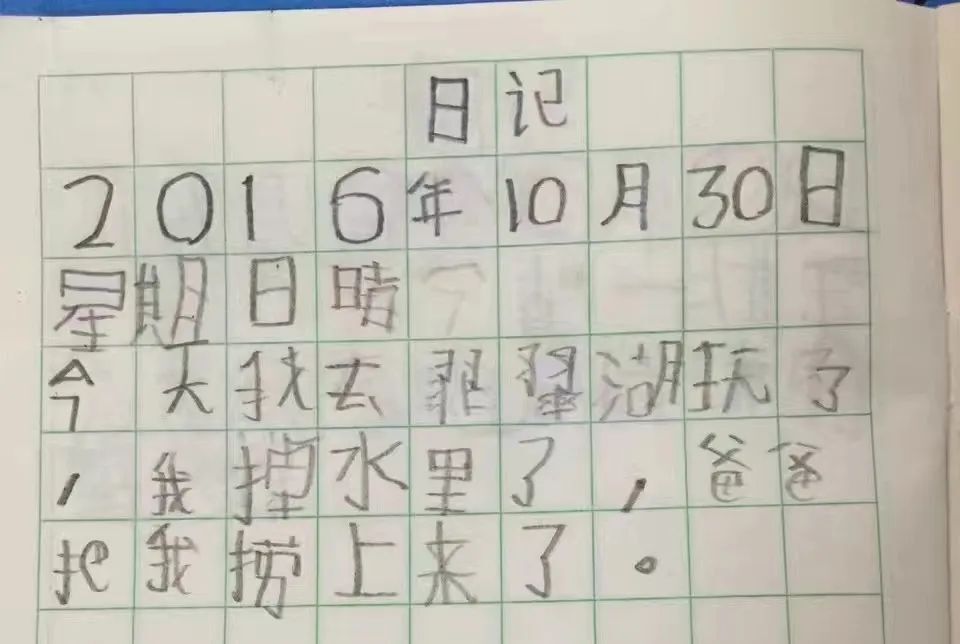 日记
2016年10月30日
星期日晴
今天我去翡翠湖玩了
，我掉水里了，爸爸
把我捞上来了。